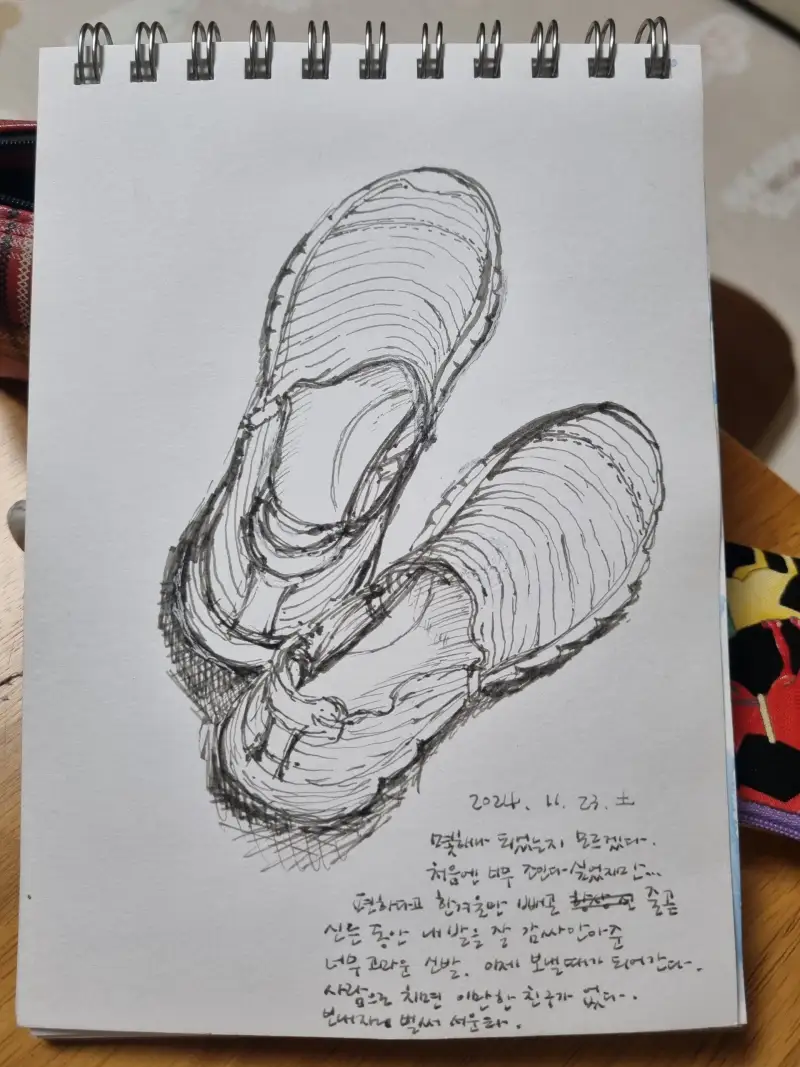 2024. 11. 23. 土
몇해나 되었는지 모르겠다.
처음엔 너무 조인다 싶었지만...
편하다고 한겨울만 빼고 줄곧
신는 동안 내 발을 잘 감싸안아준
너무 고마운 신발. 이제 보낼때가 되어간다.
사람으로 치면 이만한 친구가 없다.
보내자니 벌써 서운타.